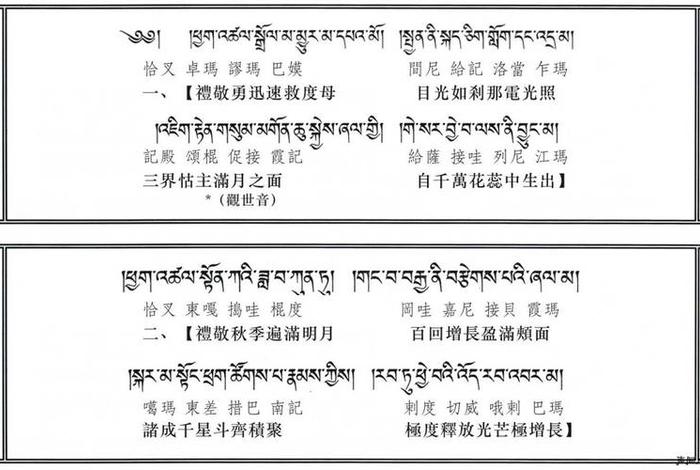 ༄༅། །ཕྱག་འཚལ་སྒྲོལ་མ་མྱུར་མ་དཔའ་མོ། །སྤྱན་ནི་སྐད་ཅིག་གློག་དང་འདྲ་མ།
恰叉 卓瑪 謬瑪 巴嫫 間尼 給記 洛當 乍瑪
一、【禮敬勇迅速救度母 目光如剎那電光照
།འཇིག་རྟེན་གསུམ་མགོན་ཆུ་སྐྱེས་ཞལ་གྱི། །གེ་སར་བྱེ་བ་ལས་ནི་བྱུང་མ།
記殿 頌棍 促接 霞記 給薩 接哇 列尼 江瑪
三界怙主滿月之面 自千萬花蕊中生出】
*（觀世音）
།ཕྱག་འཚལ་སྟོན་ཀའི་ཟླ་བ་ཀུན་ཏུ། །གང་བ་བརྒྱ་ནི་བརྩེགས་པའི་ཞལ་མ།
恰叉 東嘎 搗哇 棍度 岡哇 嘉尼 接貝 霞瑪
二、【禮敬秋季遍滿明月 百回增長盈滿頰面
།སྐར་མ་སྟོང་ཕྲག་ཚོགས་པ་རྣམས་ཀྱིས། །རབ་ཏུ་ཕྱེ་བའི་འོད་རབ་འབར་མ།
噶瑪 東差 措巴 南記 刺度 切威 哦刺 巴瑪
諸成千星斗齊積聚 極度釋放光芒極增長】